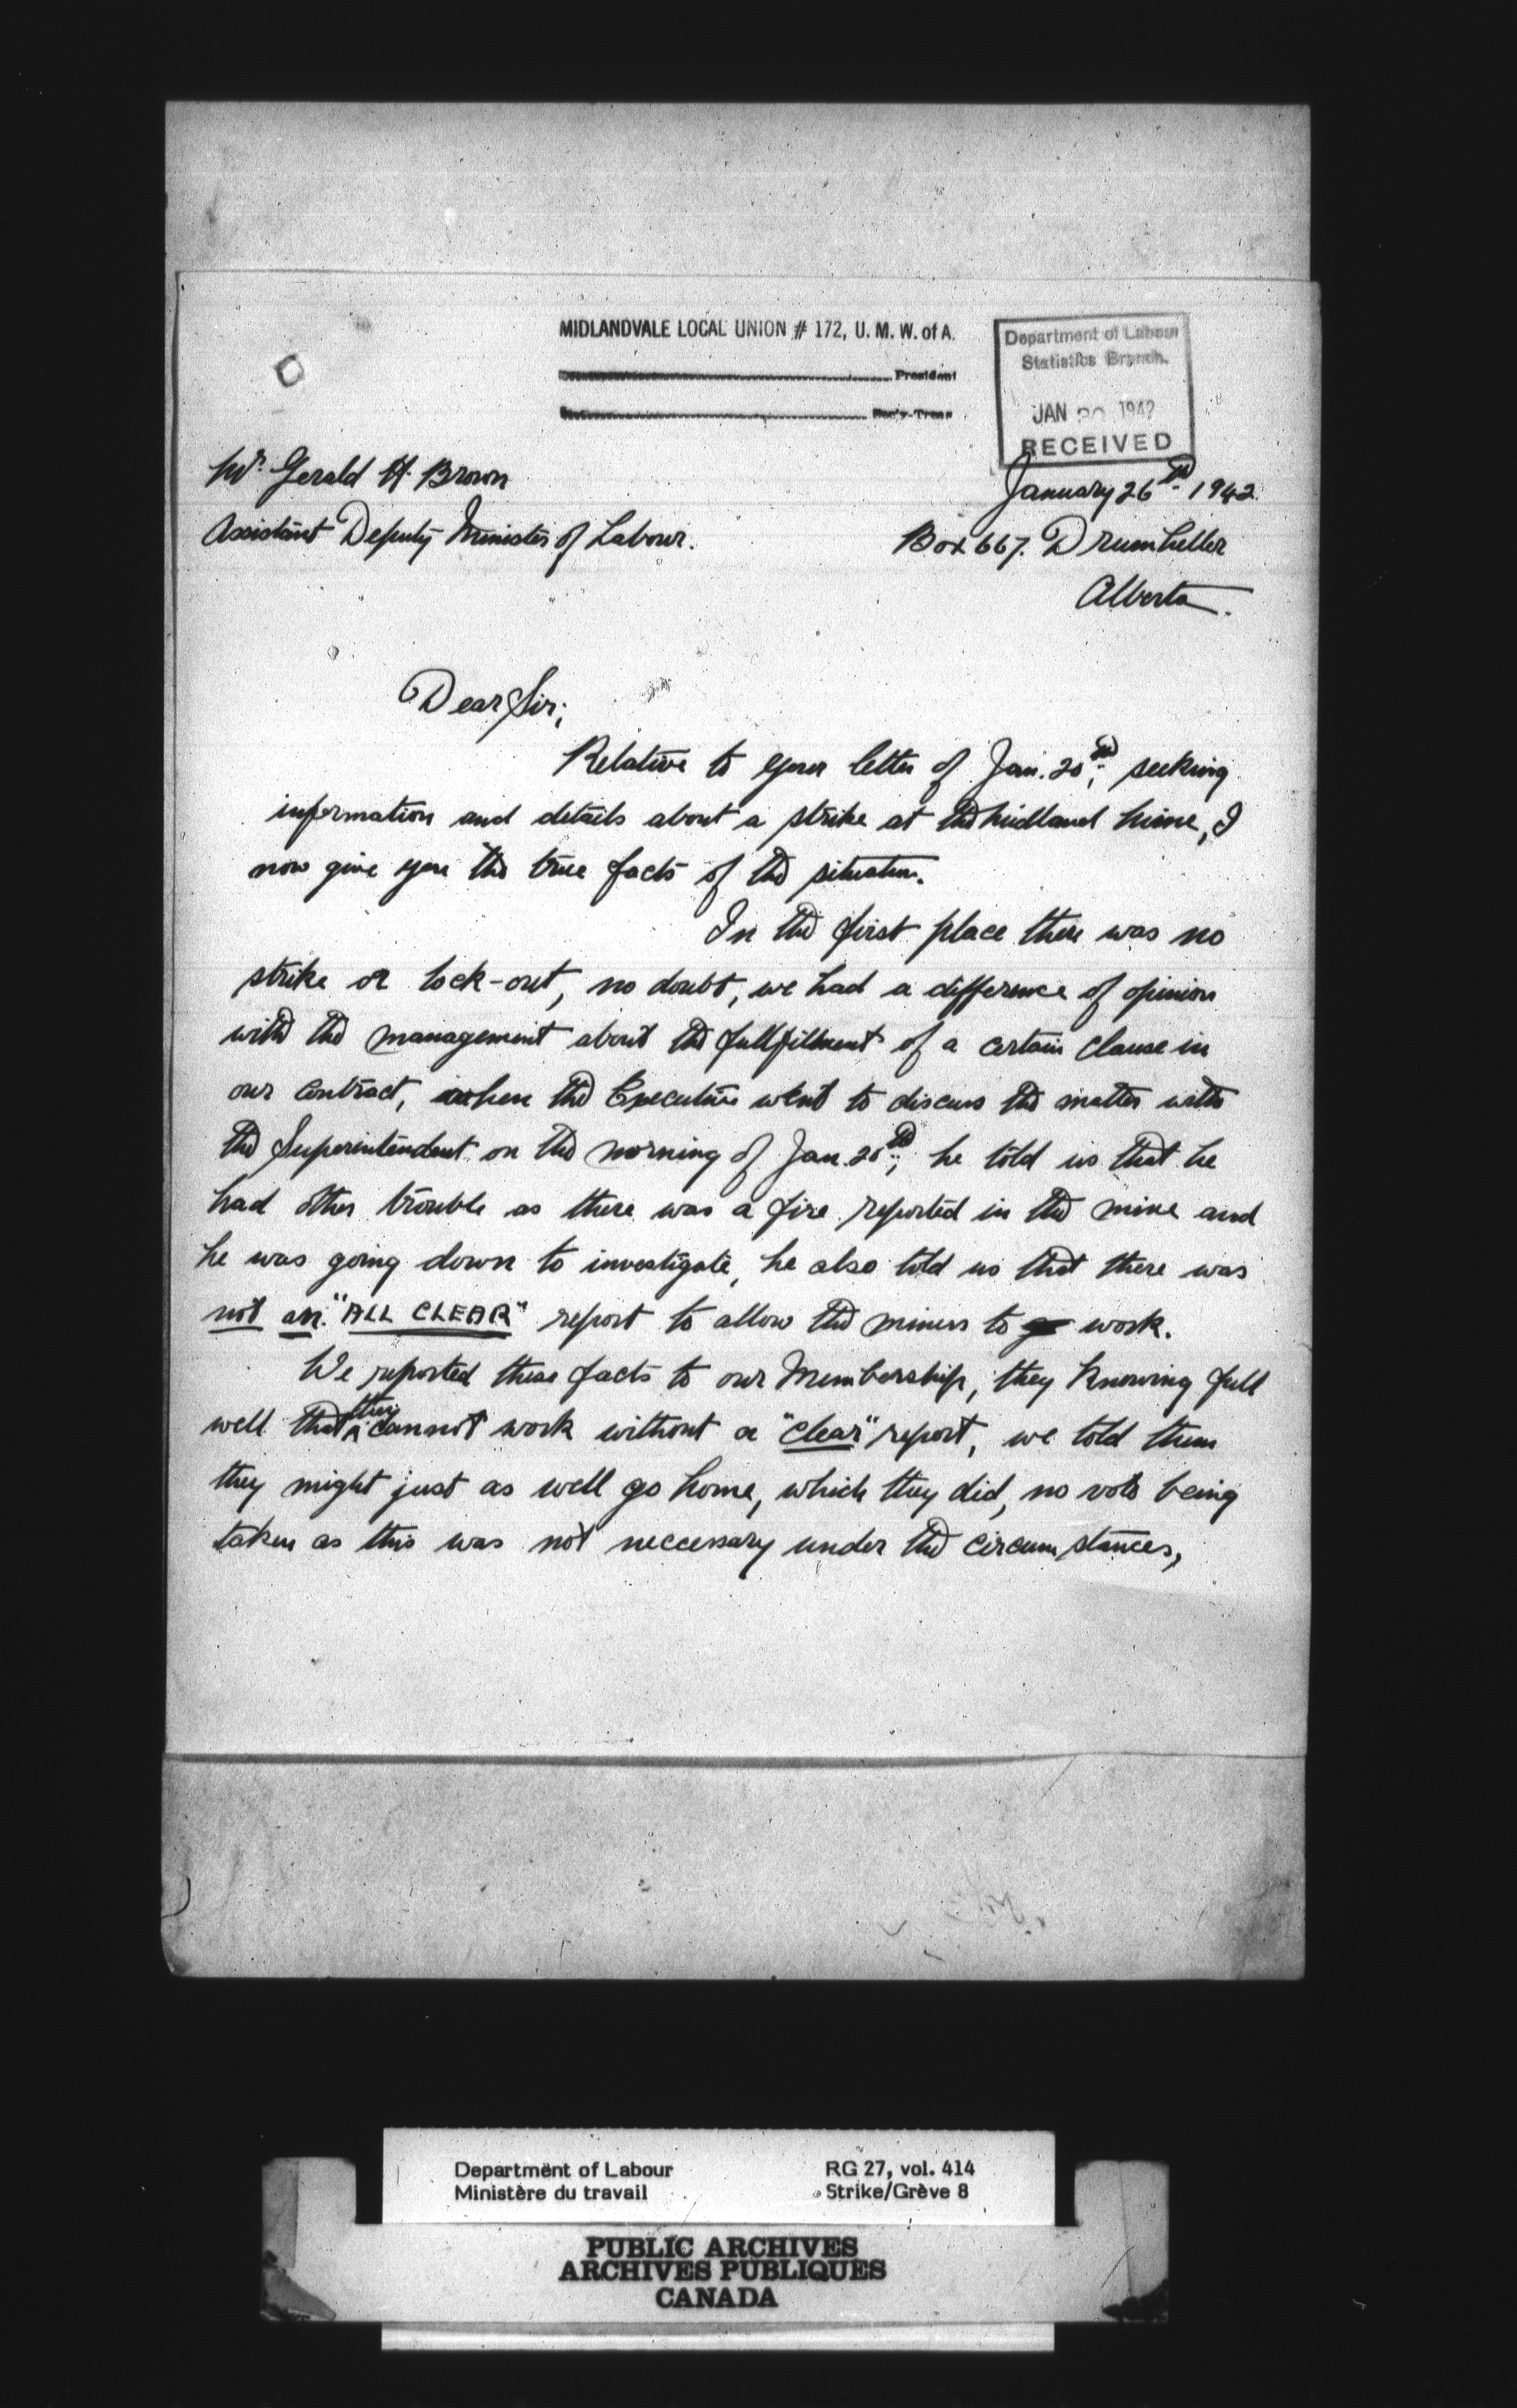 MIDLANDVALE LOCAL UNION # 172, U. M. W. of A.
President
Sec'y-Treas
Department of Labour
Statistics Branch.
JAN 30 1942
RECEIVED
Mr. Gerald H. Brown
January 26th 1942.
Assistant Deputy Minister of Labour.
Box 667. Drumheller
Alberta.
Dear Sir;
Relative to your letter of Jan. 20th; seeking
information and details about a strike at the Midland Mine, I
now give you the true facts of the situation.
In the first place there was no
strike or lock-out, no doubt, we had a difference of opinion
with the management about the fullfillment of a certain clause in
our contract, when the Executive went to discuss the matter with
the Superintendent on the morning of Jan. 20th; he told us that he
had other trouble as there was a fire reported in the mine and
he was going down to investigate, he also told us that there was
not an "ALL CLEAR" report to allow the miners to work.
We reported these facts to our Membership, they knowing full
well that they cannot work without a "clear" report, we told them
they might just as well go home, which they did, no vote being
taken as this was not neccessary under the circumstances,
Department of Labour
Ministère du travail
RG 27, vol. 414
Strike/Grève 8
PUBLIC ARCHIVES
ARCHIVES PUBLIQUES
CANADA